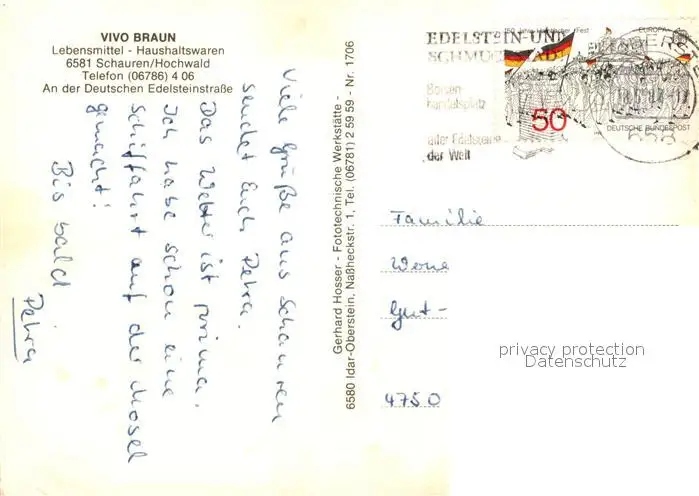 VIVO BRAUN
Lebensmittel - Haushaltswaren
6581 Schauren/Hochwald
Telefon (06786) 4 06
An der Deutschen Edelsteinstraße
Viele Grüße aus Schauren
sendet Euch Petra.
Das Wetter ist prima.
Ich habe schon eine
Schiffahrt auf der Mosel
gemacht!
Bis bald
Petra
Gerhard Hosser - Fototechnische Werkstätte -
6580 Idar-Oberstein, Naßheckstr. 1, Tel. (06781) 2 59 59 - Nr. 1706
EDELSTEIN-UND
SCHMUCK
Börsen
handelsplatz
aller Edelsteine
der Welt
EUROPA
50
DEUTSCHE BUNDESPOST
Familie
Werne
Gut-
4750
privacy protection
Datenschutz